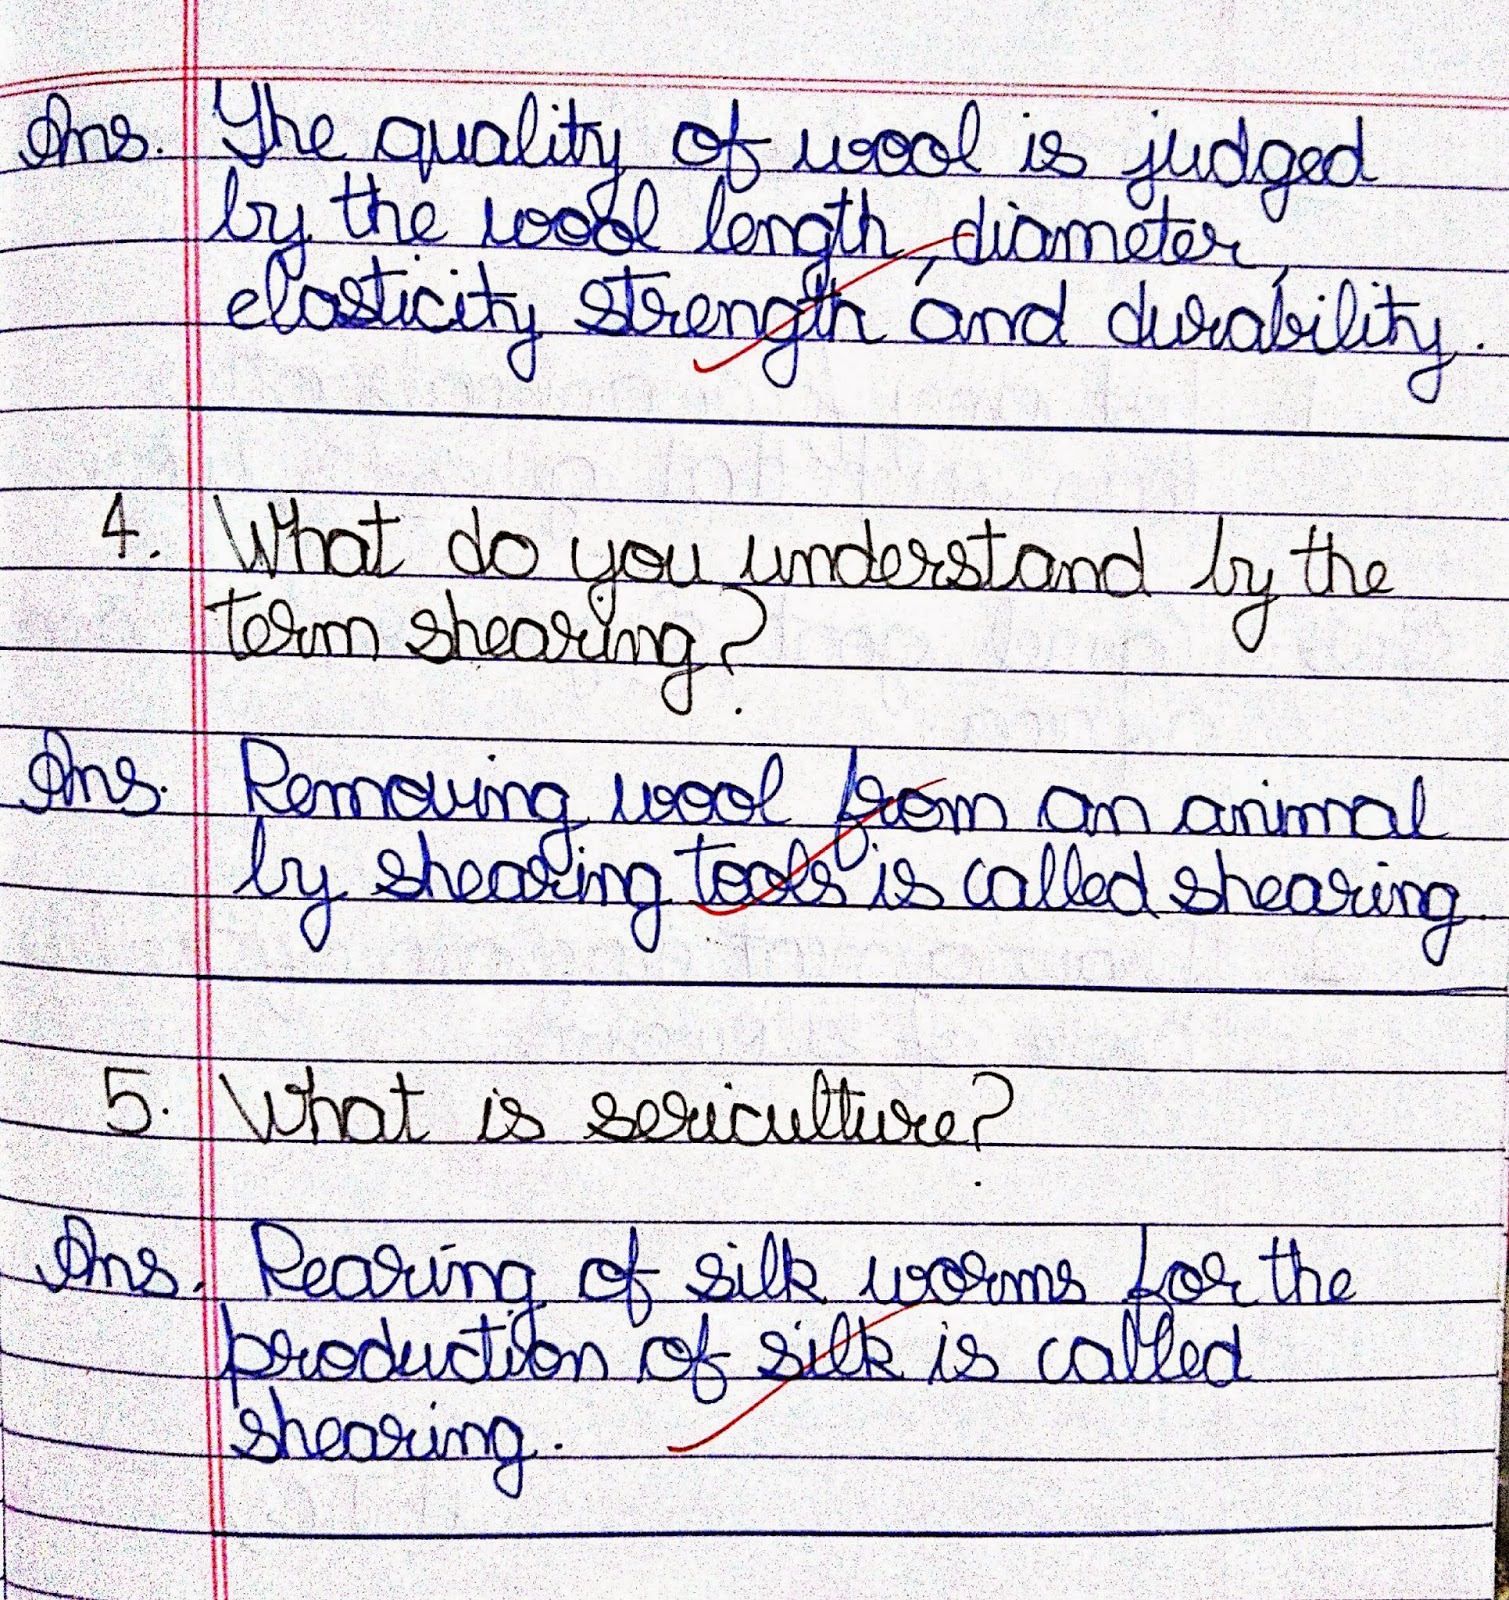 Ans. The quality of wool is judged
by the wool length, diameter,
elasticity strength and durability.
4. What do you understand by the
term shearing?
Ans. Removing wool from an animal
by shearing tools is called shearing.
5. What is sericulture?
Ans. Rearing of silk worms for the
production of silk is called
shearing.